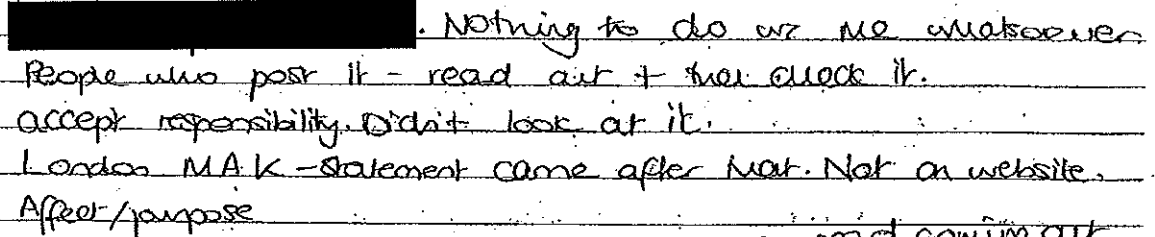 . Nothing to do w me whatsoever
People who post it - read out + then check it.
accept responsibility. Didn't look at it.
London MAK - statement came after that. Not on website.
Affect/purpose
and coming out